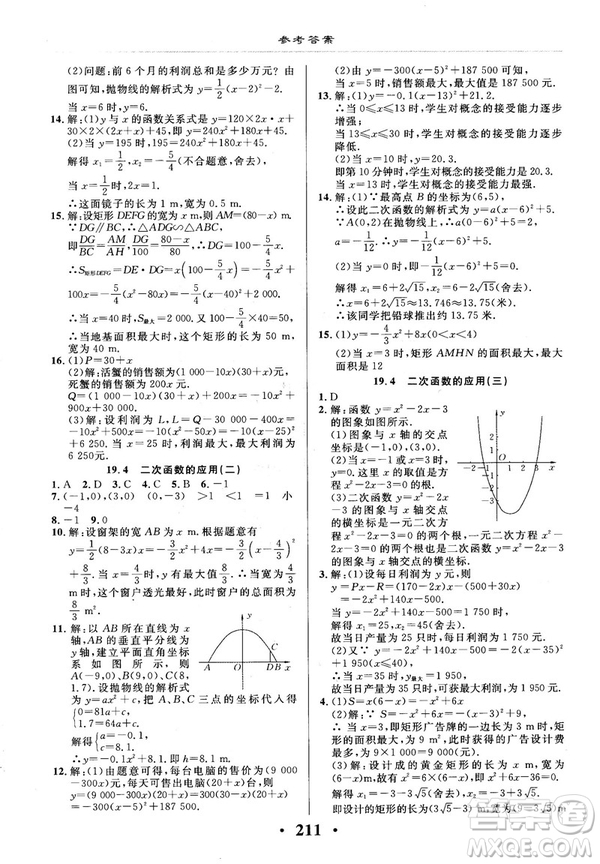 参考答案
(2)问题:前6个月的利润总和是多少万元?由
图可知,抛物线的解析式为y=1/2(x-2)²-2.
当x=6时,y=6.
14.解:(1)y与x的函数关系式是y=120×2x·x+
30×2×(2x+x)+45,即y=240x²+180x+45.
(2)当y=195时,240x²+180x+45=195.
解得x₁=1/2,x₂=-5/4(不合题意,舍去),
∴2x=1.
∴这面镜子的长是1 m,宽是1/2 m.
15.解:设矩形DEFG的宽为x m,则AM=(80-x) m.
∵DG//BC,∴△ADG∽△ABC,
即DG/BC=AM/AH,DG/100=80-x/80.
∴S矩形DEFG=DE·DG=x(100-5/4x)
=-5/4(x²-80x)=-5/4(x-40)²+2 000,
∴当x=40时,S最大=2 000,DG=100-5/4×40=50.
∴当地基面积最大时,这个矩形的长为50 m,
宽为40 m.
16.(1)P=30+x
(2)解:活蟹的销售额为(1 000-10x)(30+x)元,
死蟹的销售额为200x元.
Q=(1 000-10x)(30+x)+200x=-10x²+
900x+30 000.
(3)解:设利润为L,L=Q-(30 000+400x)=
-10x²+500x=-10(x-25)²+6 250.
当x=25时,可获利润最大,最大利润为
6 250元.
19.4 二次函数的应用(二)
1.A 2.D 3.C 4.C 5.B 6.-1
7.(-1,0) (3,0) <0 >1 <1 =1 小
-4
8.-1 9.0
10.解:设窗架的宽为x m.根据题意有
y=1/2(8-3x)x=-3/2x²+4x=-3/2(x-4/3)²
+8/3,则y有最大值8/3.∴当窗架的宽为4/3 m,长为
2 m时,这个窗户透光最好,此时窗户的总面积为
8/3 m².
11.解:以AB所在直线为x
轴,AB的垂直平分线为y
轴,建立平面直角坐标
系如图,则
A(-9,0),B(9,0),D(8,
1.7).设抛物线的解析式
为y=ax²+c,将A、B、D三点的坐标代入得
0=81a+c,
1.7=64a+c.
解得a=-0.1,c=8.1.
∴y=-0.1x²+8.1.即h=8.1 m.
12.(1)解:由题意可得,每台电脑的售价为(9 000
-300x)元,每天可售出电脑(5+x)台,则y=
(9 000-300x-6 500)(5+x)=-300x²+
1 000x+12 500.
(2)由(1)得y=-300(x-5/3)²+
(2)由(1)得,y=-300(x-5)²+187 500.
∴当x=5时,销售额最大,最大值是187 500元.
13.解:(1)y=-0.1(x-13)²+21.2.
当0≤x≤13时,学生对概念的接受能力逐步
增强;
当13≤x≤30时,学生对概念的接受能力逐步
降低.
(2)当x=10时,y=59,
即第10分钟时,学生对概念的接受能力是59.
(3)当x=13时,学生对概念的接受能力最强.
14.解:(1)∵最高点B的坐标为(6,5),
∴设此二次函数的解析式为y=a(x-6)²+5.
∵A(0,2)在抛物线上,∴2=a(-6)²+5.
a=-1/12,∴y=-1/12(x-6)²+5.
(2)∵当y=0时,-1/12(x-6)²+5=0.
解得x₁=6+2√15,x₂=6-2√15(舍去).
∴x=6+2√15≈13.75.
∴该同学把铅球推出约13.75 m.
15.(1)y=-x²+8x(0<x<8)
(2)当x=4时,矩形AMHN的面积最大,最大面
积为12
19.4 二次函数的应用(三)
1.D
2.解:函数y=x²-2x-3
的图象如图所示.
(1)图象与x轴的交点
坐标为(-1,0),(3,0).
(2)当x=-1或x=3时,
y=0.这里x的取值是方
程x²-2x-3=0的根.
(3)函数y=x²-2x
-3的图象与x轴交点
的横坐标是一元二次方程
x²-2x-3=0的两个根,即方程x²-2x-3=
0的两个根是函数y=x²-2x-3的图象与x轴
交点的横坐标.
3.解:(1)设每日利润为y元.
y=Px-R=(170-2x)x-(500+30x)
=-2x²+140x-500,
(2)当y=1 750时,-2x²+140x-500=1 750,
解得x₁=25,x₂=45(舍去).
故当日产量为25只时,每日利润为1 750元.
(3)∵y=-2x²+140x-500=-2(x-35)²+
1 950,∴当x=35时,y最大=1 950.
故当日产量为35只时,可获得最大利润1 950元.
4.(1)S=-x²+6x(0<x<6)
(2)解:∵S=-x²+6x=-(x-3)²+9,∴当x=
3时,S最大=9.即矩形广告牌的一边长为3 m时,
矩形的面积最大为9 m²,这时的广告设计费最
多为9×1 000=9 000(元).
(3)解:设设计成的黄金矩形的长为x m,宽为
(6-x) m,则x²=6(6-x),即x²+6x-36=0.
解得x₁=3√5-3,x₂=-3√5-3(舍去).
则6-x=6-(3√5-3)=(9-3√5)m,
即设计的矩形的长为(3√5-3)m,宽为(9-3√5)m
◆ 211 ◆